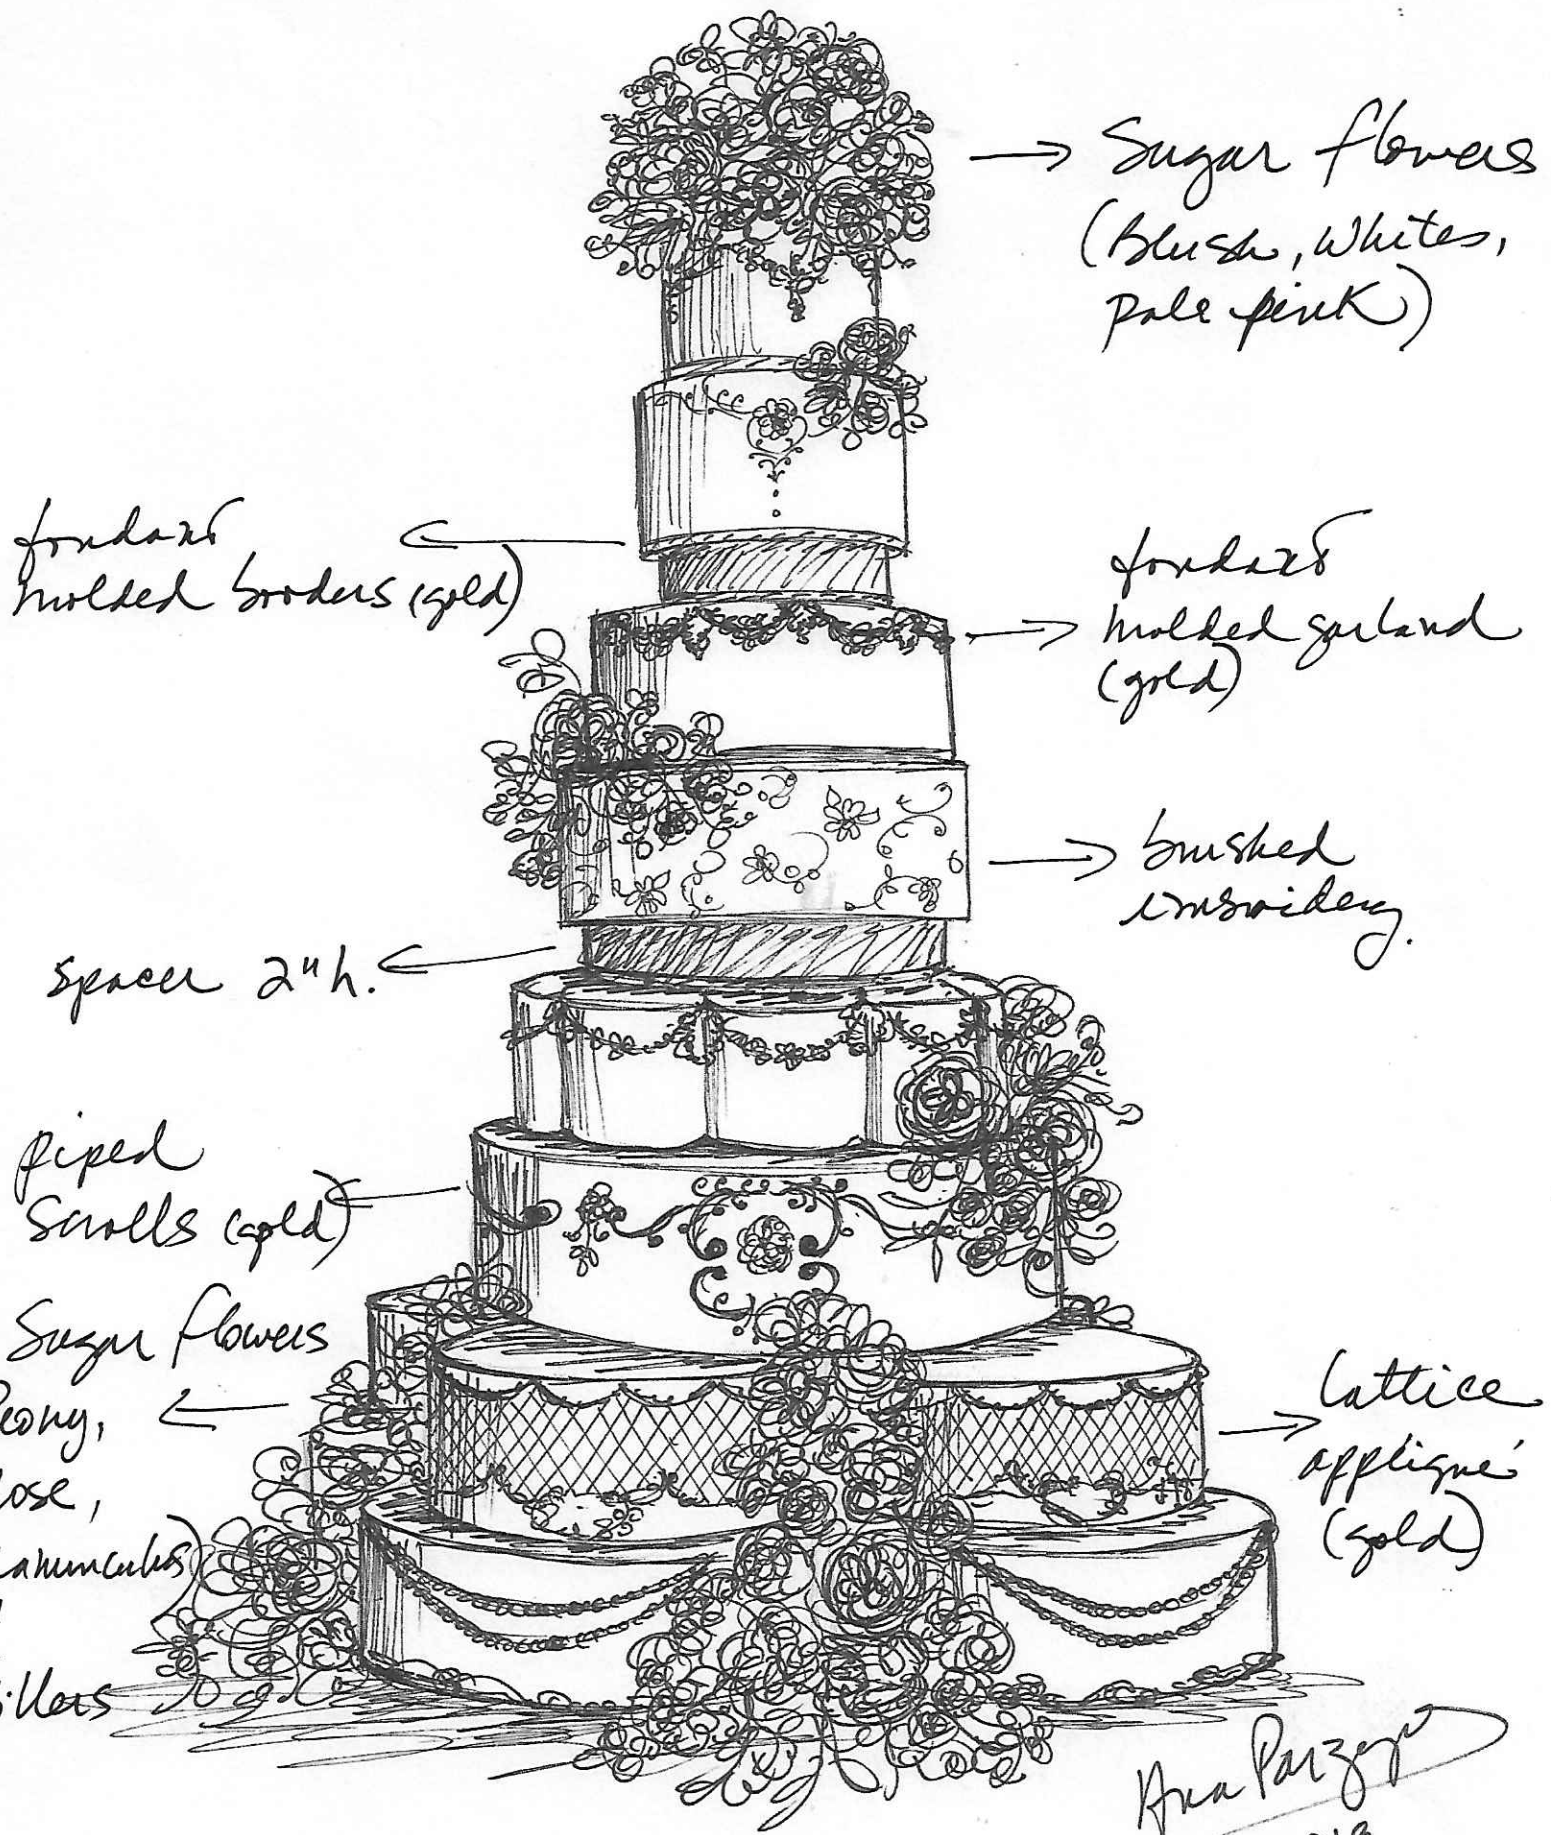 Sugar flowers
(Blush, Whites,
pale pink)
fondant
molded borders (gold)
fondant
molded garland
(gold)
brushed
embroidery.
spacer 2"h.
piped
Scrolls (gold)
Sugar flowers
Peony,
Rose,
Ranunculus)
fillers
Lattice
appliqué
(gold)
Ana Parzych